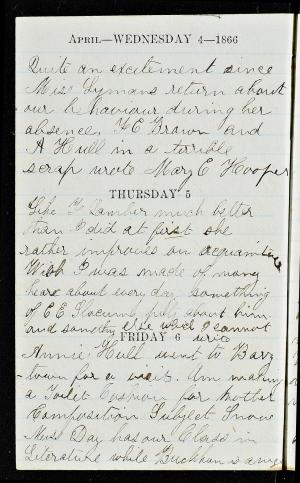 April—WEDNESDAY 4—1866
Quite an excitement since
Miss Lymans return about
our behaviour during her
absence. H E Brown and
A Hull in a terrible
scrap wrote Mary E Hooper
THURSDAY 5
Like F Lamber much better
than I did at first she
rather improves on acquaintance
Wish I was made of many
hears about every day something
of E E Slocumb about him
and something else which I cannot
write
FRIDAY 6
Annie Hull went to Barry
town for a visit. Am making
a Toilet Cushion for Mother
Composition Subject Snow
Miss Day has our Class in
Literature while Buckham is away